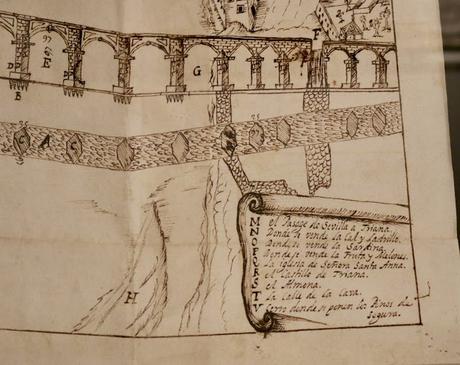 F
E
G
D
D
B
C A C
H
M el Pasage de Sevilla a Triana.
N Donde se vende la Cal y Ladrillo.
O Donde se vende la Sardina.
P Donde se vende la Fruta y Melones.
Q La iglesia de Señora Santa Anna.
R el Castillo de Triana.
S el Almona.
T La Calle de la Cava.
V donde se ponen los Pinos de
Segura.